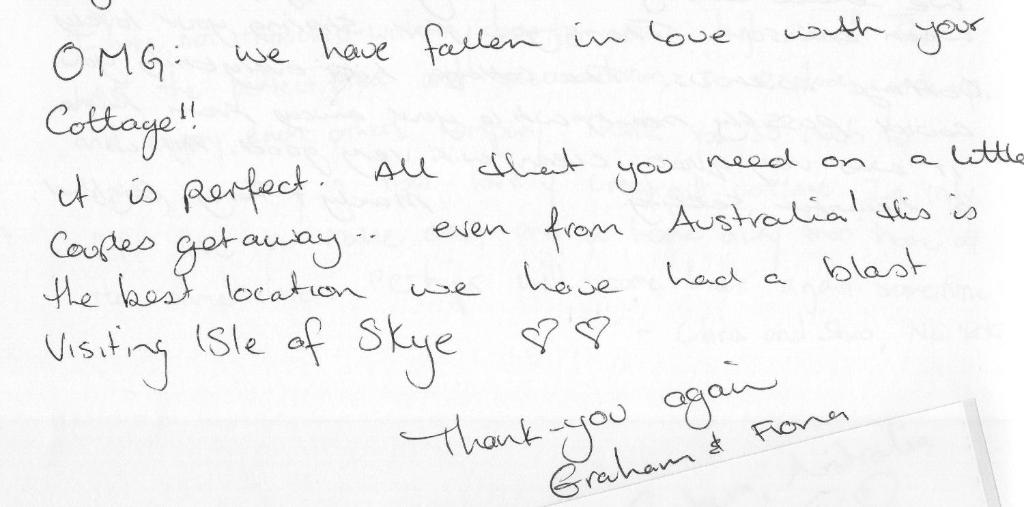 OMG: we have fallen in love with your
Cottage!!
it is perfect. All that you need on a little
Couples getaway... even from Australia! this is
the best location we have had a blast
Visiting Isle of Skye ♡♡
Thank-you again
Graham & Fiona